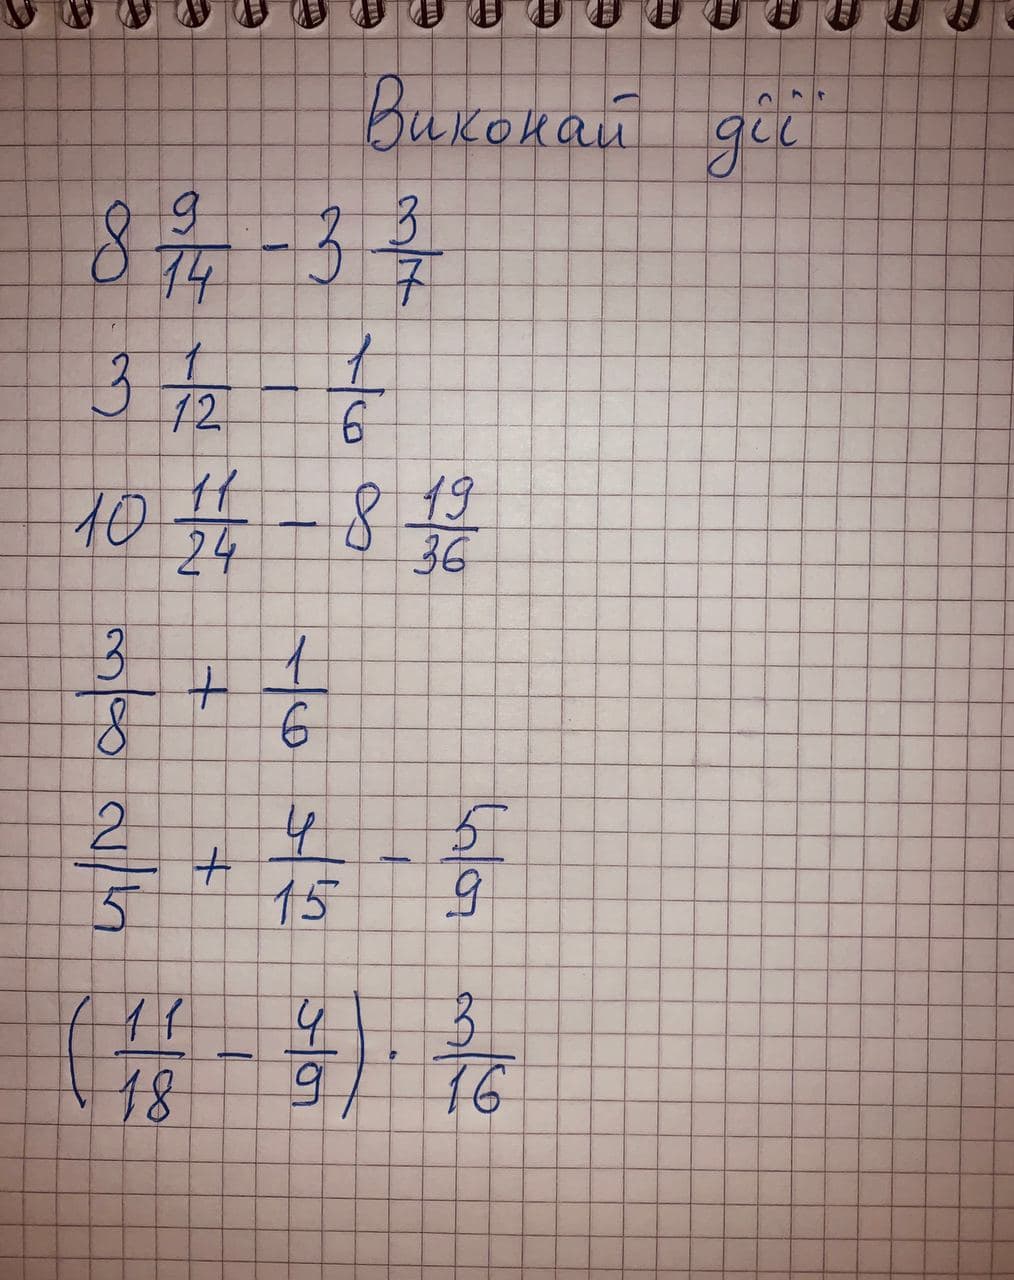 Виконай дії
8 9/14 - 3 3/7
3 1/12 - 1/6
10 11/24 - 8 19/36
3/8 + 1/6
2/5 + 4/15 - 5/9
(11/18 - 4/9) · 3/16